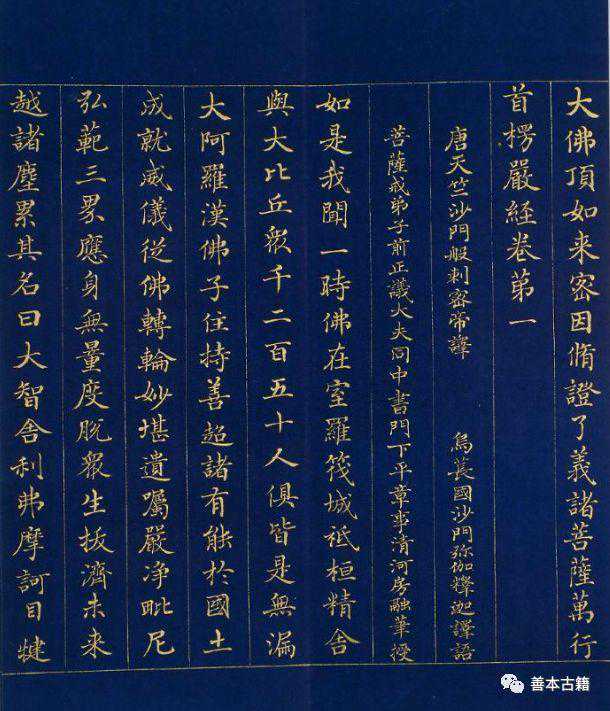 大佛頂如来密因脩證了義諸菩薩萬行
首楞嚴経卷第一
唐天竺沙門般剌密帝譯 烏長國沙門弥伽釋迦譯語
菩薩戒弟子前正議大夫同中書門下平章事清河房融筆授
如是我聞一時佛在室羅筏城祗桓精舎
與大比丘衆千二百五十人俱皆是無漏
大阿羅漢佛子住持善超諸有能於國土
成就威儀従佛轉輪妙堪遺囑嚴淨毗尼
弘範三界應身無量度脫衆生拔濟未来
越諸塵累其名曰大智舎利弗摩訶目揵
善本古籍